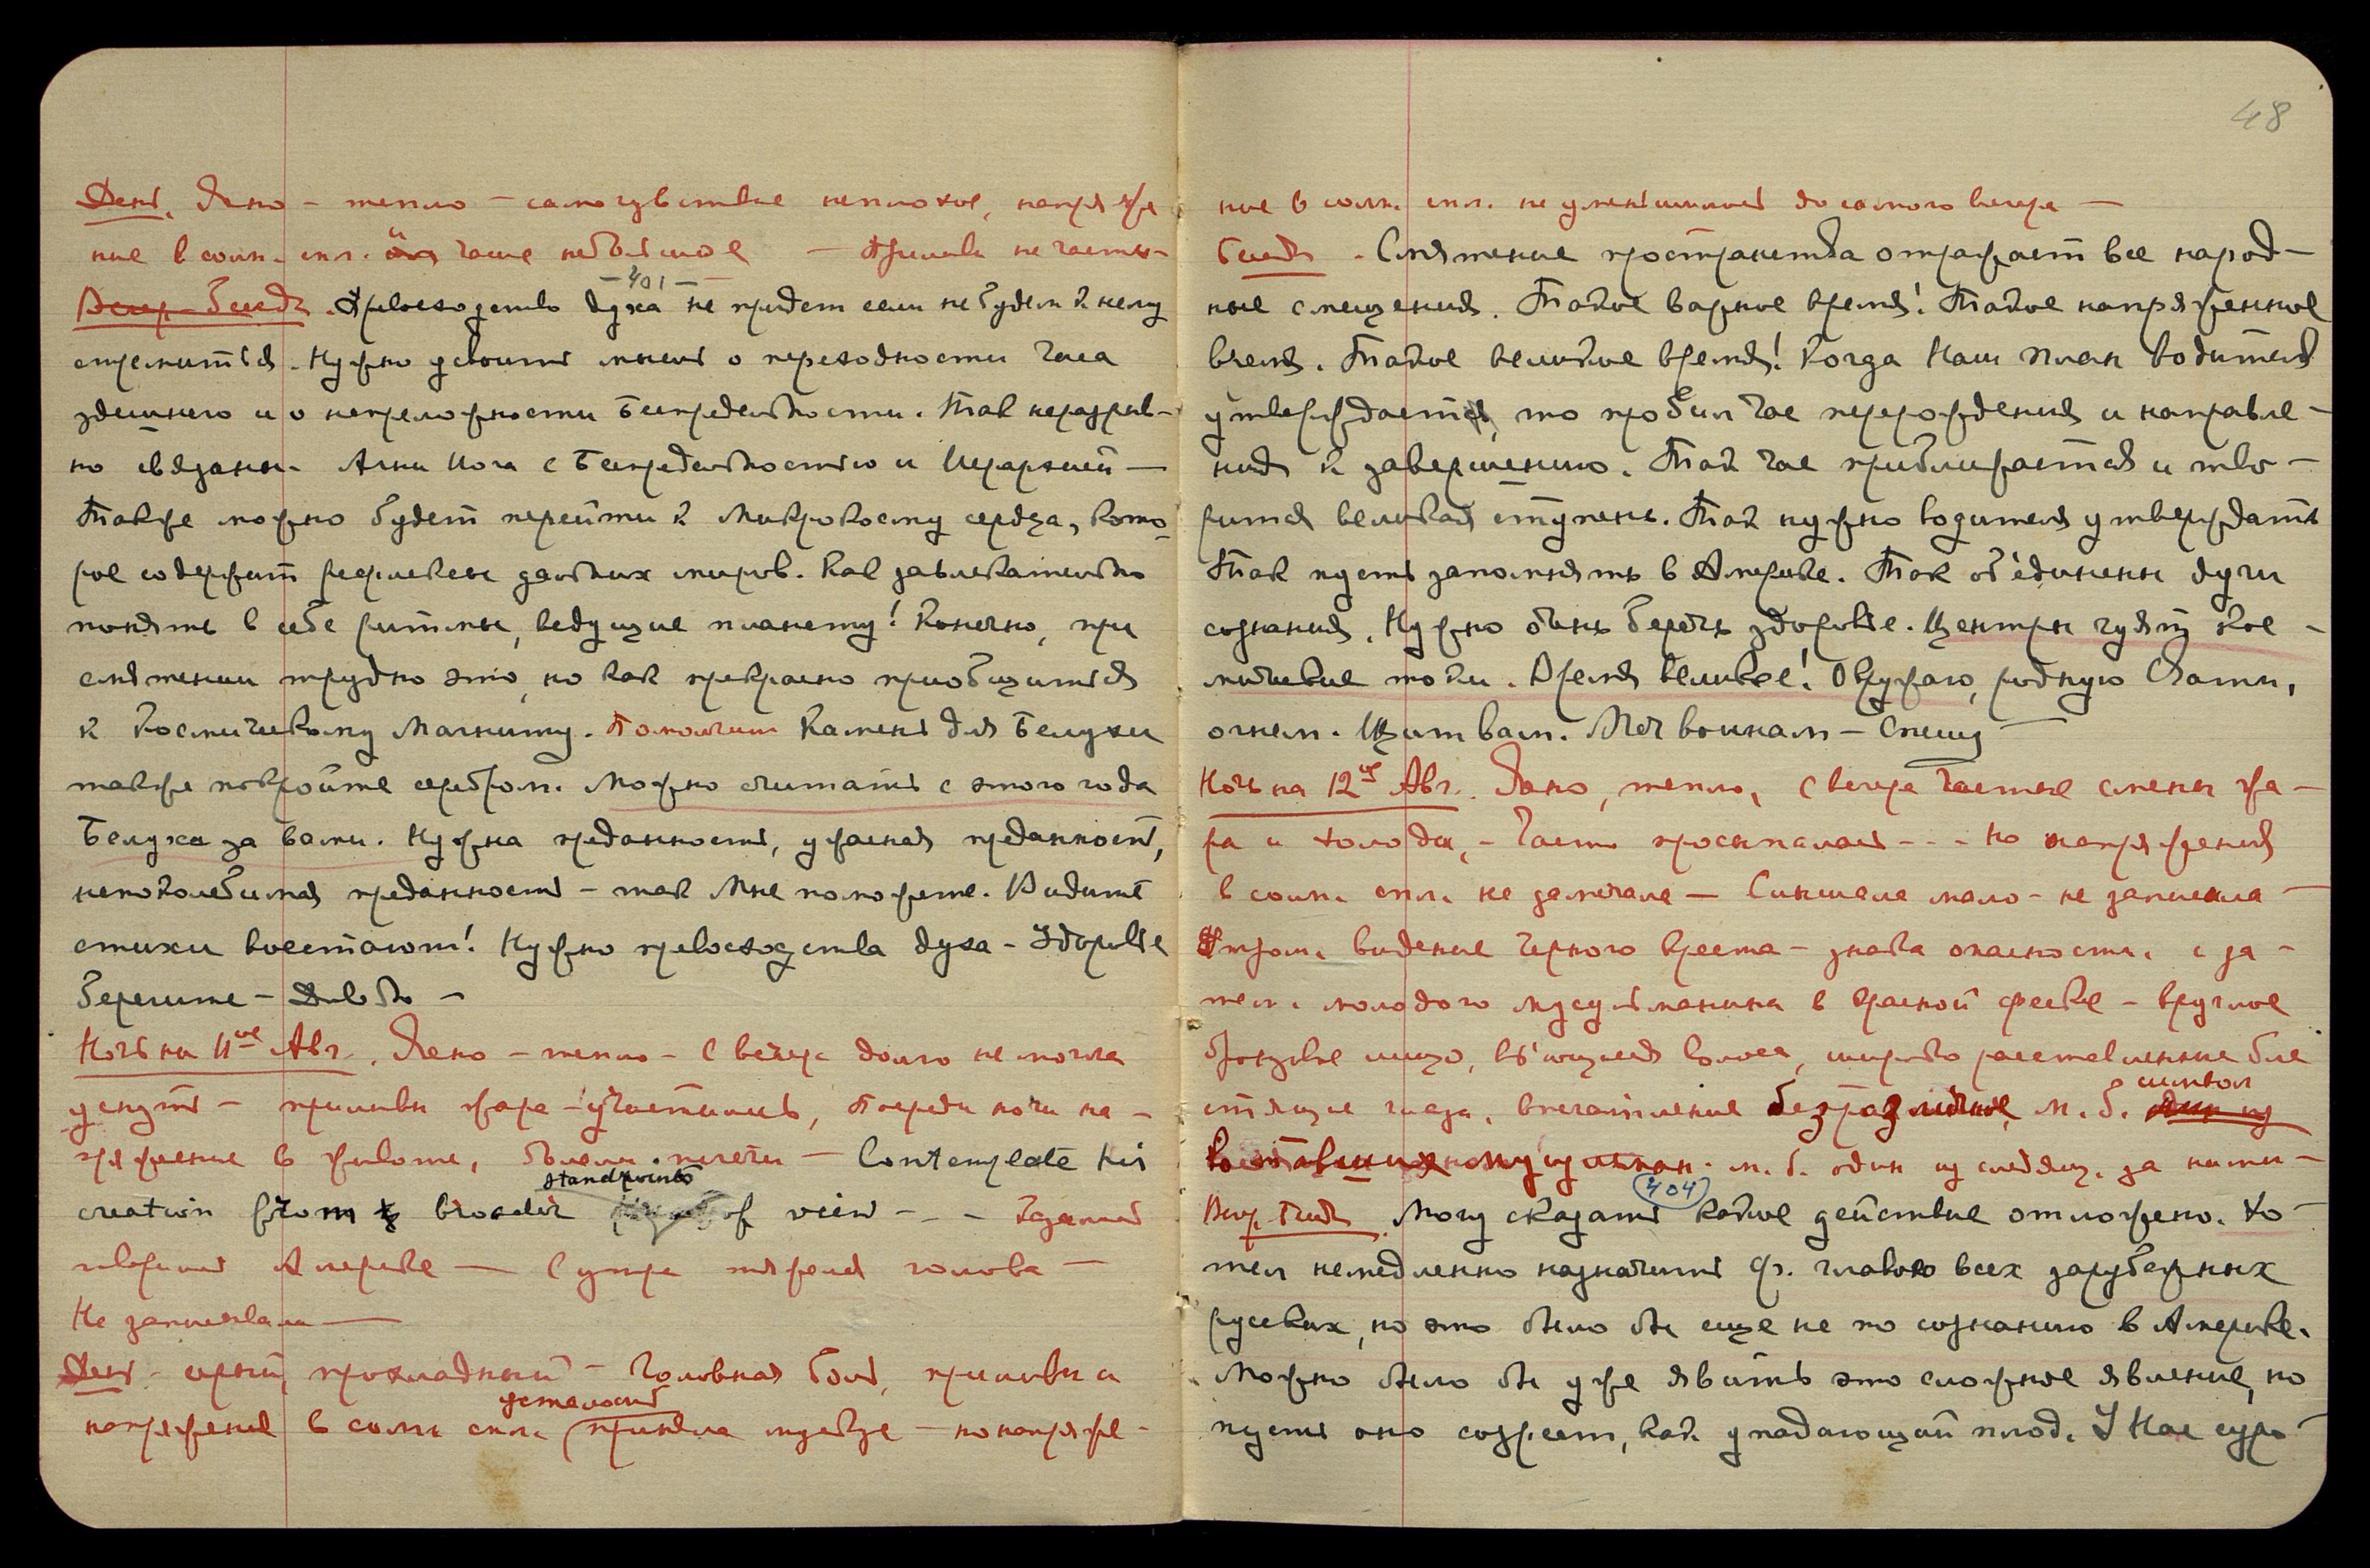 День. Ясно – тепло – самочувствие неплохое, напряже
ние в солн. спл. чаще небольшое – приливы не часты –
– 401 –
Вечер – Беседа. Превосходство духа не придет если не будем к нему
стремиться. Нужно усвоить мысль о переходности часа
здешнего и о непреложности Беспредельности. Так неразрыв-
но связаны Агни Йога с Беспредельностью и Иерархией –
Также можно будет перейти к Микрокосму сердца, кото-
рое содержит рефлексы дальних миров. Как завлекательно
понять в себе ритмы, ведущие планету! Конечно, при
смятении трудно это, но как прекрасно приобщиться
к Космическому Магниту. Камень для Белухи
также покройте серебром. Можно считать с этого года
Белуха за вами. Нужна преданность, ужасная преданность,
непоколебимая преданность – так Мне поможете. Видите
стихии восстают! Нужно превосходство духа – Здоровье
берегите – Довольно –
Ночь на 11ое Авг. Ясно – тепло – С вечера долго не могла
уснуть – приливы жара – участились, посреди ночи на-
пряжение в животе, болели плечи – Contemplate his
standpoints
creation from broader of view – – –
Америке – С утра тяжелая голова –
Не записывала –
День – серый, прохладный – Головная боль, приливы и
усталость
напряжения в солн. спл. приняла – но напряже-
48
ние в солн. спл. не уменьшилось до самого вечера –
Беседа. Смятение пространства отражает все народ-
ные смещения. Такое важное время! Такое напряженное
время. Такое великое время! Когда Наш план водителя
утверждается, то пробил час перерождения и направле-
ния к завершению. Так час приближается и тво-
рится великая ступень. Так нужно водителя утверждать
Так пусть запомнять в Америке. Так об'единены лучи
сознания. Нужно очень беречь здоровье. Центры чуят кос-
мические токи. Время великое! Окружаю, родную Свати,
огнем. Щит вам. Меч воинам – Спешу –
Ночь на 12ое Авг. Ясно, тепло, с вечера частые смены жа-
ра и холода, – Часто просыпалась – – – но напряжения
в солн. спл. не замечала – Слышала мало – не записала –
Утром. видение черного креста – знака опасности. и за-
тем. молодого мусульманина в красной феске – круглое
бронзовое лицо, вьющиеся волоса, широко расставленные бле
символ
стящие глаза, впечатление безразличное, м. б.
восставших мусульман. м. б. один из следящ. за нами –
404
Веч. Беседа. Могу сказать какое действие отложено. Хо-
тел немедленно назначить Ф. главою всех зарубежных
русских, но это было бы еще не по сознанию в Америке.
Можно было бы уже явить это сложное явление, но
пусть оно созреет, как упадающий плод. У Нас суро-